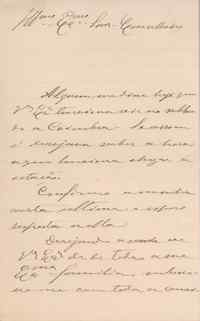 Illmo Exmo Snr. Conselheiro
Alguem me disse hoje que
V. Exª tenciona ir no sabbado
a Coimbra. Se assim
é desejava saber a hora
a que tenciona chegar á
estação.
Confirmo a minha
carta ultima e espero
resposta a ella.
Desejando a saude de
V. Exª e de toda a sua
Exma familia, subscrevo-me
com toda a consi